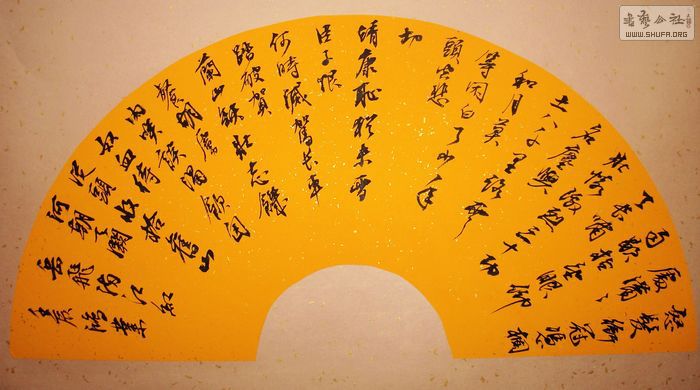 怒髮衝冠憑欄
處瀟瀟
雨歇抬望眼仰
天長嘯
壯懷激烈三十功
名塵與
土八千里路雲
和月莫
等闲白了少年
頭空悲
切
靖康恥猶未雪
臣子恨
何時滅駕長車
踏破賀
蘭山缺壯志饑
餐胡虜
肉笑談渴飲匈
奴血待
從頭收拾舊山
河朝天闕
岳飛滿江紅
壬辰鴻業
書藝公社
WWW.SHUFA.ORG